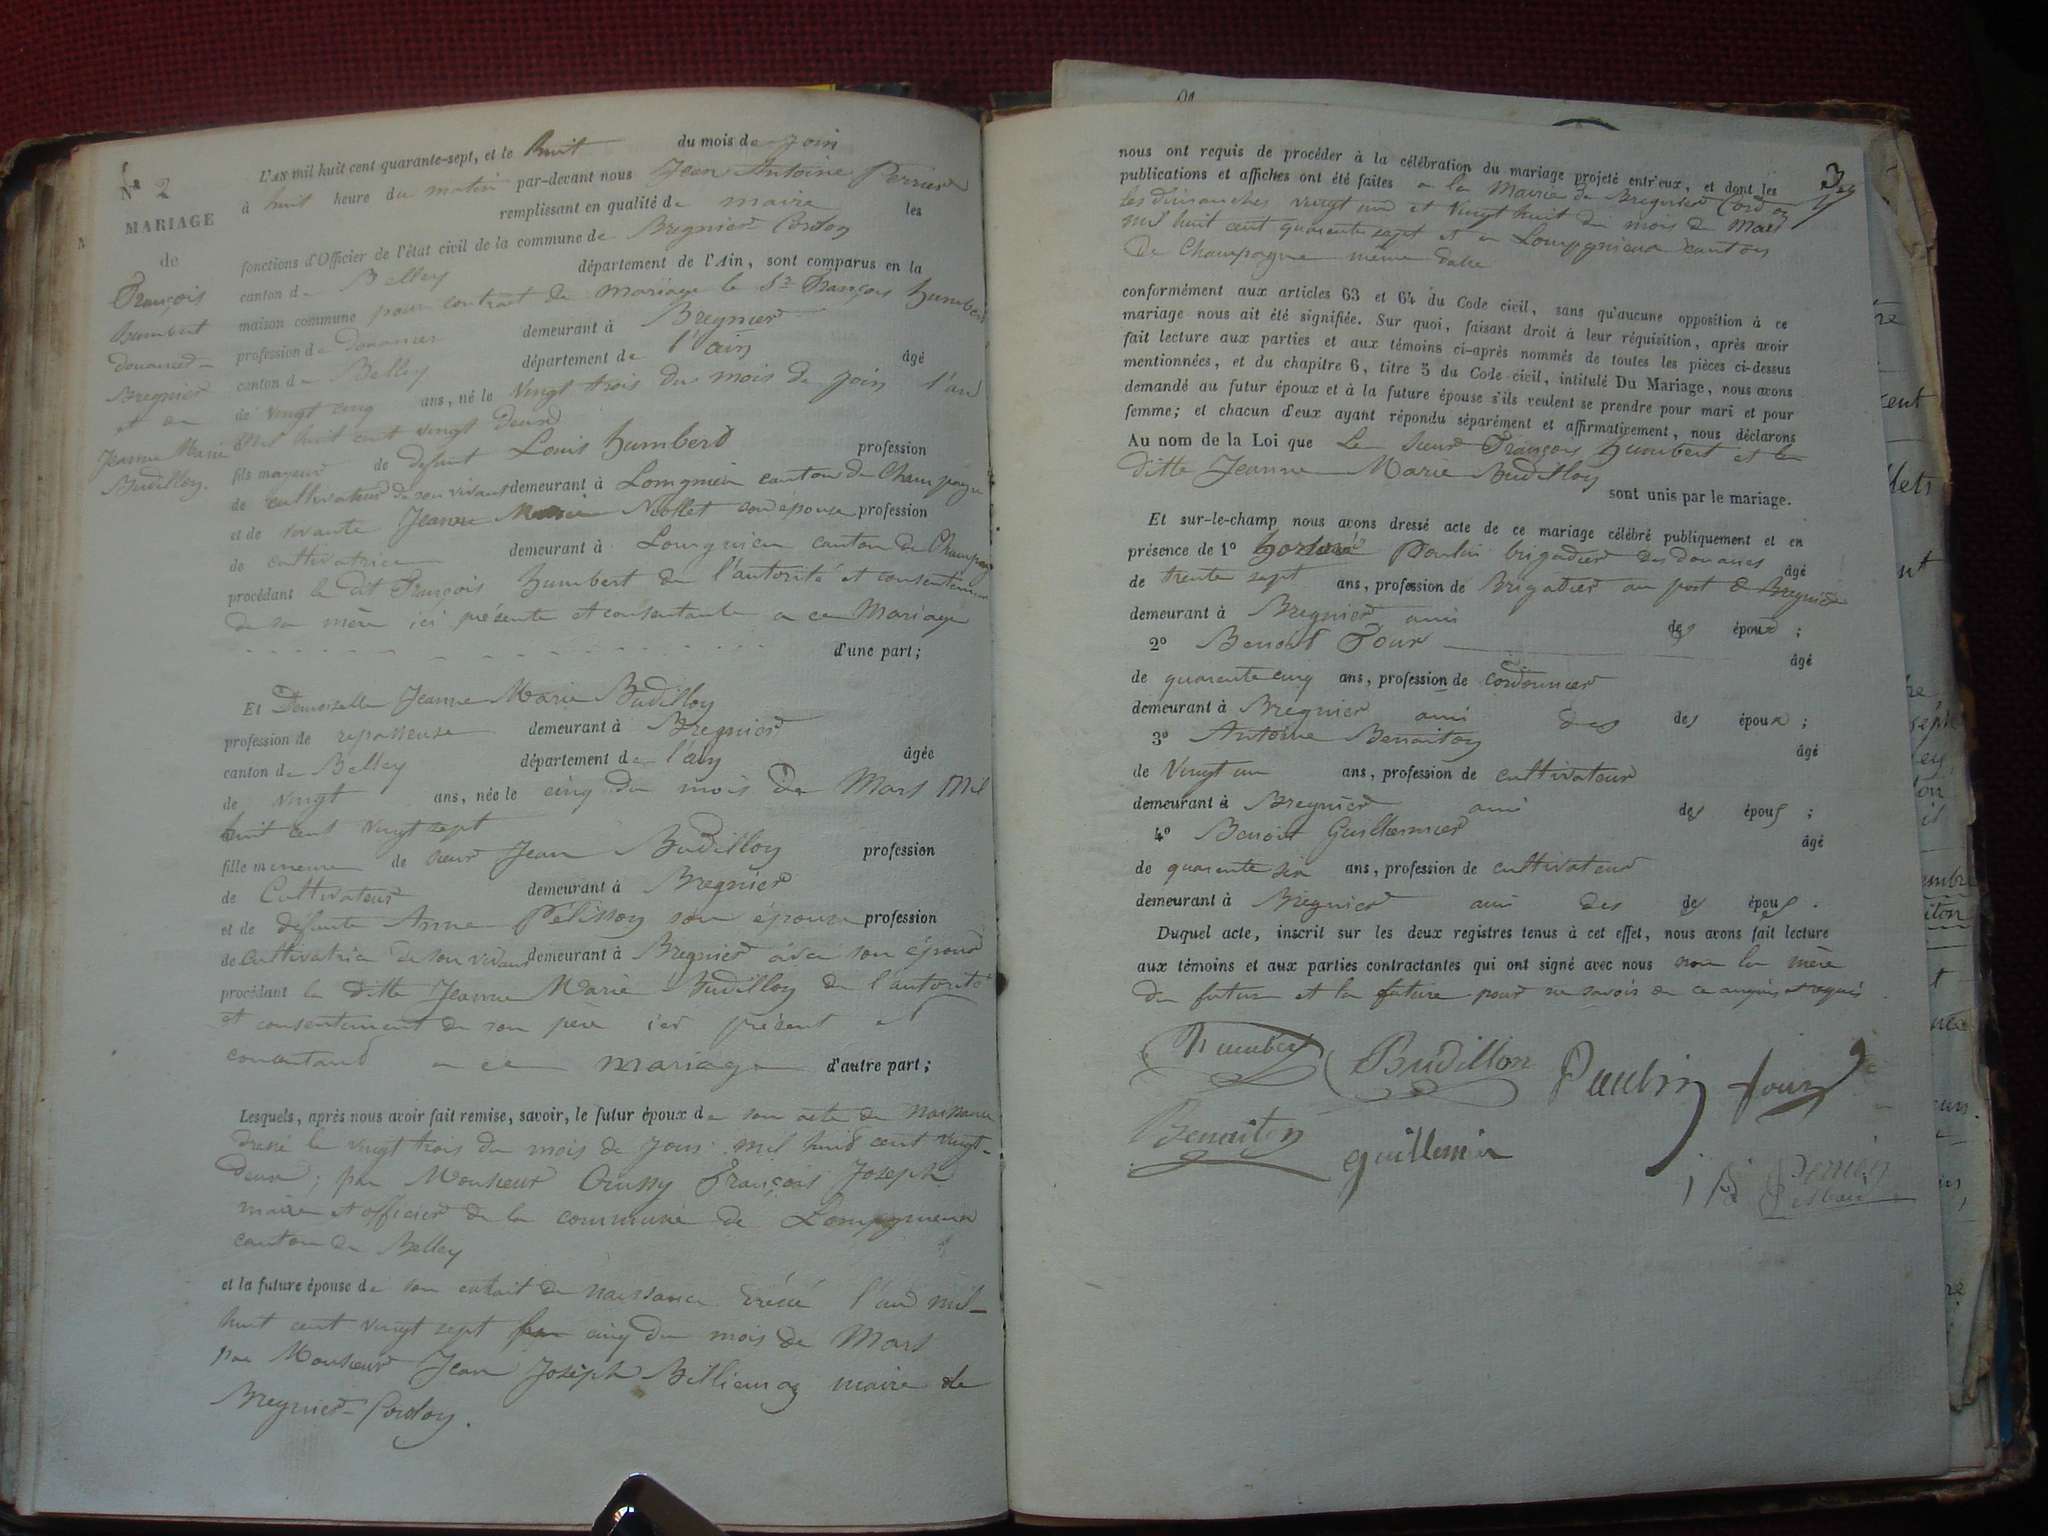 N° 2
MARIAGE
de
François
humbert
douanier
Bregnier
et de
Jeanne Marie
Budilloy.
L'AN mil huit cent quarante-sept, et le huit du mois de join
à huit heure du matin par-devant nous Jean Antoine Perrier
maire remplissant en qualité de les
fonctions d'Officier de l'état civil de la commune de Bregnier Cordoy
canton de Belley département de l'Ain, sont comparus en la
maison commune pour contrat de mariage le Sr François humbert
profession de douanier demeurant à Bregnier
canton de Belley département de l'ain âgé
de vingt cinq ans, né le vingt trois du mois de join l'an
mil huit cent vingt deux
fils majeur de defunt Louis humbert profession
de cultivateur de son vivant demeurant à Lompnieu canton de Champagne
et de vivante Jeanne Marie Nollet son épouse profession
de cultivatrice demeurant à Lompnieu canton de Champagne
procédant le dit François humbert de l'autorité et consentement
de sa mère ici présente et consentante a ce Mariage
d'une part;
Et Demoiselle Jeanne Marie Budilloy
profession de repasseuse demeurant à Bregnier
canton de Belley département de l'ain âgée
de vingt ans, née le cinq du mois de Mars Mil
huit cent vingt sept
fille mineure de sieur Jean Budilloy profession
de Cultivateur demeurant à Bregnier
et de défunte Anne Pélissoy son épouse profession
de cultivatrice de son vivant demeurant à Bregnier avec son époux
procédant la ditte Jeanne Marie Budilloy de l'autorité
et consentement de son père ici présent et
consentant a ce mariage d'autre part;
Lesquels, après nous avoir fait remise, savoir, le futur époux de son acte de naissance
dressé le vingt trois du mois de join mil huit cent vingt-
deux; par Monsieur François Joseph
maire et officier de la commune de Lompgnieux
canton de Belley
et la future épouse de son extrait de naissance l'an mil-
huit cent vingt sept cinq du mois de Mars
par Monsieur Jean Joseph maire de
Bregnier-Cordoy.
nous ont requis de procéder à la célébration du mariage projeté entr'eux, et dont les
publications et affiches ont été faites a la Mairie de Bregnier Cordoy
les dimanches vingt un et vingt huit du mois de Mars
mil huit cent quarente sept et a Lompgnieux canton
de Champagne même date
conformément aux articles 63 et 64 du Code civil, sans qu'aucune opposition à ce
mariage nous ait été signifiée. Sur quoi, faisant droit à leur réquisition, après avoir
fait lecture aux parties et aux témoins ci-après nommés de toutes les pièces ci-dessus
mentionnées, et du chapitre 6, titre 5 du Code civil, intitulé Du Mariage, nous avons
demandé au futur époux et à la future épouse s'ils veulent se prendre pour mari et pour
femme; et chacun d'eux ayant répondu séparément et affirmativement, nous déclarons
Au nom de la Loi que Le sieur François humbert et la
ditte Jeanne Marie Budilloy
sont unis par le mariage.
Et sur-le-champ nous avons dressé acte de ce mariage célébré publiquement et en
présence de 1° Paulin brigadier des douanes âgé
de trente sept ans, profession de Brigadier au port de Bregnier
demeurant à Bregnier ami des époux;
2° Benoit Jour âgé
de quarente cinq ans, profession de cordonnier
demeurant à Bregnier ami des des époux;
3° Antoine Benoitoy âgé
de Vingt un ans, profession de cultivateur
demeurant à Bregnier ami des époux;
4° Benoit Guillermier âgé
de quarente six ans, profession de cultivateur
demeurant à Bregnier ami des des époux.
Duquel acte, inscrit sur les deux registres tenus à cet effet, nous avons fait lecture
aux témoins et aux parties contractantes qui ont signé avec nous non la mère
du futur et la future pour ne savoir de ce enquis et requis
Humbert Budillon Paulin Jour
Benoiton guillemin
Perrier